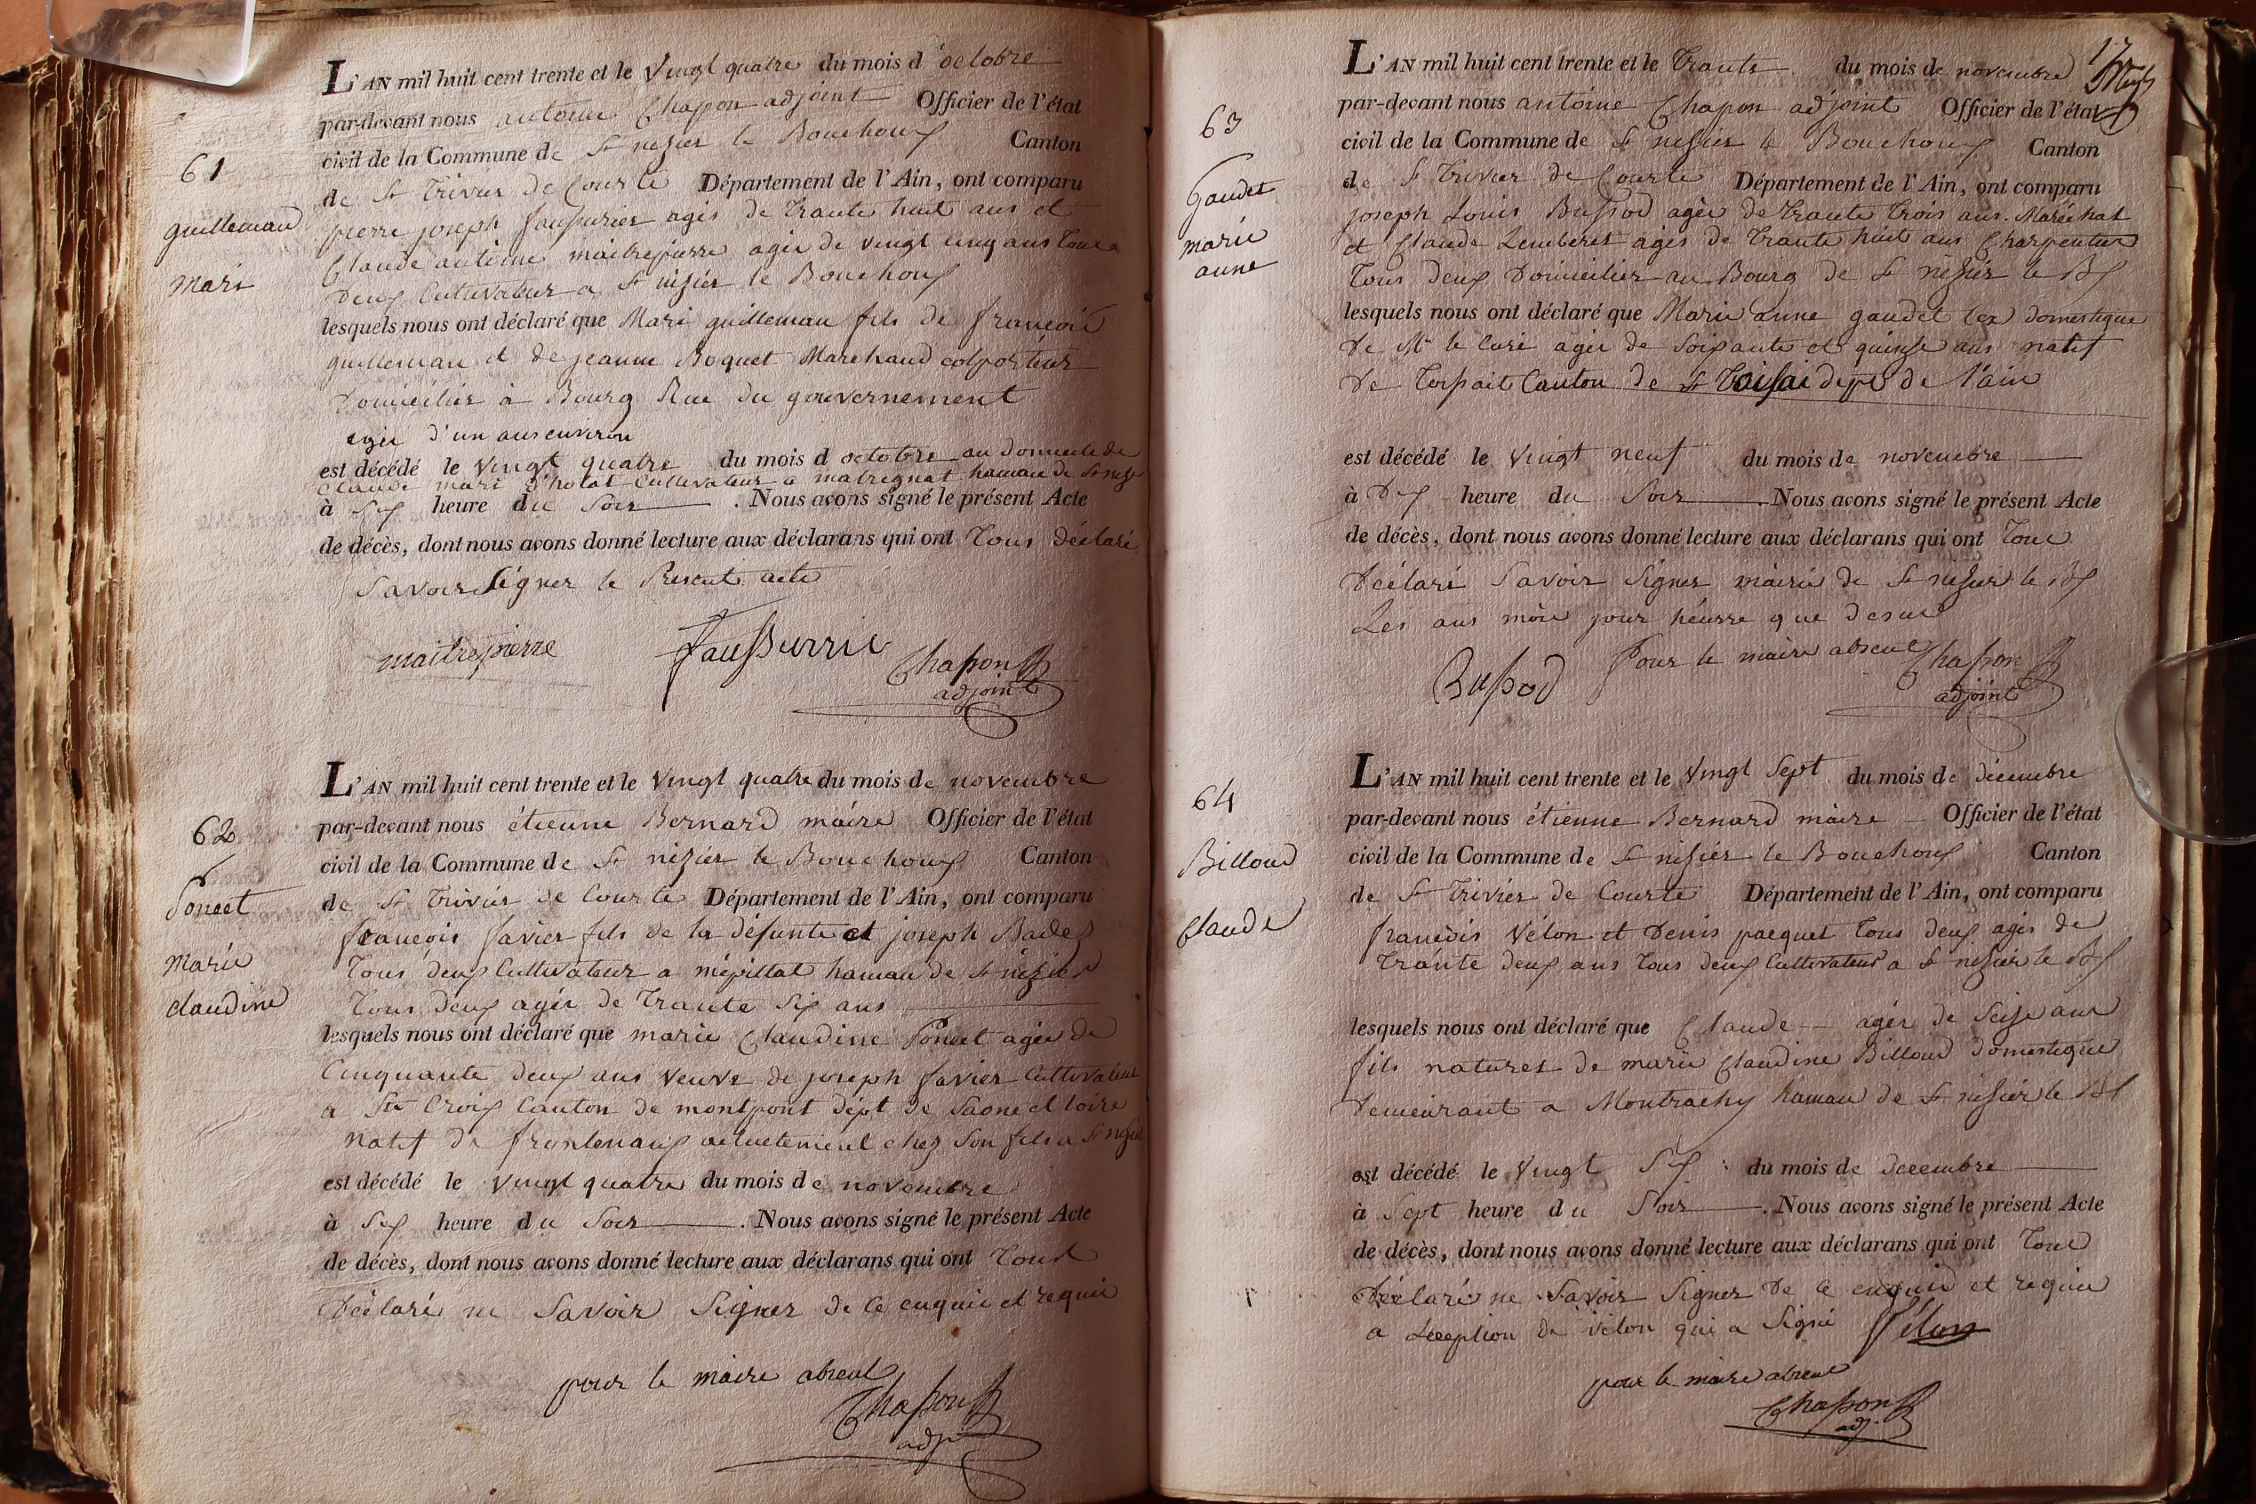 61
guilleman
Mari
L'AN mil huit cent trente et le Vingt quatre du mois d'octobre
par-devant nous antoine Chapon adjoint Officier de l'état
civil de la Commune de St nizier le Bouchoux Canton
de St Trivier de Courte Département de l'Ain, ont comparu
pierre joseph faussurier agés de Traute huit ans et
Claude antoine maitrepierre agée de vingt cinq ans Tous
Deux Cultivateur a St nizier le Bouchoux
lesquels nous ont déclaré que Mari guilleman fils de francois
guilleman et de jeanne Boquet Marchand colporteur
Domicilier à Bourg Rue du gouvernement
agée d'un ans environ
est décédé le Vingt quatre du mois d octobre au Domicile de
Claude mari Cultivateur a hamau de St nizier
à Six heure du Soir. Nous avons signé le présent Acte
de décès, dont nous avons donné lecture aux déclarans qui ont Tous Déclaré
Savoir Signer le Present acte
maitrepierre
Chapon
adjoint
62
Poncet
marie
claudine
L'AN mil huit cent trente et le Vingt quatre du mois de novembre
par-devant nous étienne Bernard màire Officier de l'état
civil de la Commune de St nizier le Bouchoux Canton
de St Trivier de Courte Département de l'Ain, ont comparu
francois favier fils de la défunte et joseph Badez
Tous deux Cultivateur a mépillat hamau de St nizier
Tous deux agée de Traute Six ans
lesquels nous ont déclaré que marie Claudine Poncet agée de
Cinquante deux ans veuve de joseph favier Cultivateur
a Ste Croix Canton de montpont dépt de Saone et loire
natif de frontenaux actuelement chez Son fils a St nizier
est décédé le Vingt quatre du mois de novembre
à Six heure du Soir. Nous avons signé le présent Acte
de décès, dont nous avons donné lecture aux déclarans qui ont Tous
Déclaré ne Savoir Signer de Ce enquie et requie
pour le maire absent
Chapon
adj
17
63
Gaudet
marie
anne
L'AN mil huit cent trente et le Traute du mois de novembre
par-devant nous antoine Chapon adjoint Officier de l'état
civil de la Commune de St nizier le Bouchoux Canton
de St Trivier de Courte Département de l'Ain, ont comparu
joseph Louis Bussod agée de Traute Trois ans Maréchal
et Claude Lemberet agés de Traute huit ans Charpentier
Tous deux Domicilier au Bourg de St nizier le Bx
lesquels nous ont déclaré que Marie anne gaudet domestique
de Mr le Curé agée de Soixante et quinze ans natif
De Canton de Toissai dept de l'ain
est décédé le Vingt neuf du mois de novembre
à Dix heure du Soir. Nous avons signé le présent Acte
de décès, dont nous avons donné lecture aux déclarans qui ont Tous
Déclaré Savoir Signer màirie de St nizier le Bx
Les ans mois jour héurre que desus
Bussod Pour le maire absent Chapon
adjoint
64
Billoud
Claude
L'AN mil huit cent trente et le Vingt Sept du mois de décembre
par-devant nous étienne Bernard màire Officier de l'état
civil de la Commune de St nizier le Bouchoux Canton
de St Trivier de Courte Département de l'Ain, ont comparu
francois Vélon et Denis pacquet Tous deux agés de
Traute deux ans Tous deux Cultivateur a St nizier le Bx
lesquels nous ont déclaré que Claude agée de Seize ans
fils naturel de marie Claudine Billoud Domestique
Demeurant a Montrachy hamau de St nizier le Bx
est décédé le Vingt Six du mois de décembre
à Sept heure du Soir. Nous avons signé le présent Acte
de décès, dont nous avons donné lecture aux déclarans qui ont Tous
Déclaré ne Savoir Signer De Ce enquie et requie
a léception de vélon qui a Signé Vélon
pour le maire absent
Chapon
adj.